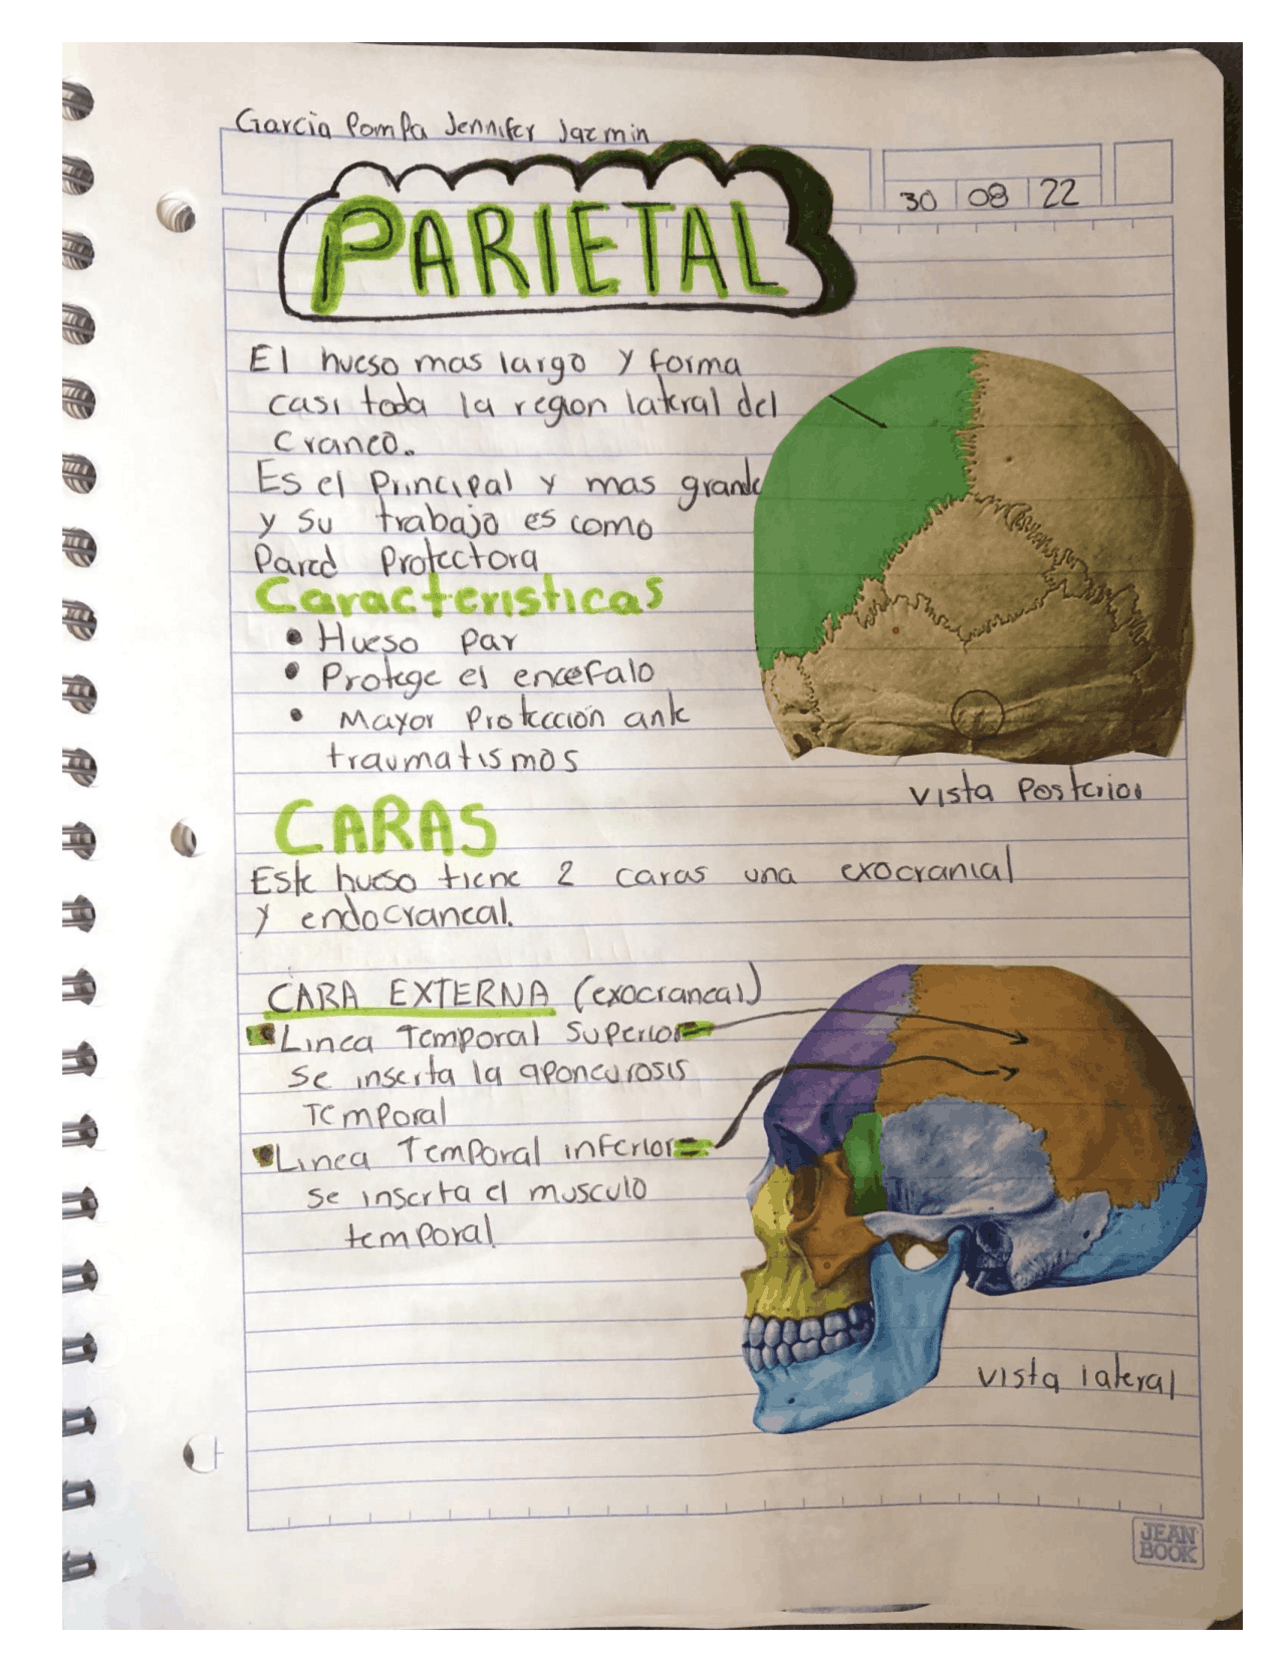 Garcia Pompa Jennifer Jazmin
30 08 22
PARIETAL
El hueso mas largo y forma
casi toda la region lateral del
craneo.
Es el Principal y mas grande
y su trabajo es como
Pared Protectora
Caracteristicas
• Hueso par
• Protege el encefalo
• Mayor Protección ante
traumatismos
vista Posterior
CARAS
Este hueso tiene 2 caras una exocranial
y endocraneal.
CARA EXTERNA (exocraneal)
Linea Temporal Superior
se inserta la aponeurosis
Temporal
Linea Temporal inferior
se inserta el musculo
temporal
vista lateral
JEAN
BOOK